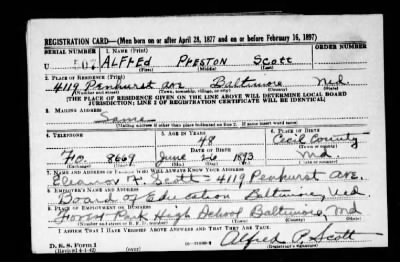 REGISTRATION CARD—(Men born on or after April 28, 1877 and on or before February 16, 1897)
SERIAL NUMBER 1. NAME (Print)
U 507 ALFRED PRESTON SCOTT
(First) (Middle) (Last)
2. PLACE OF RESIDENCE (Print)
4119 Penhurst Ave. Baltimore Md
(Number and street) (Town, township, village, or city) (County) (State)
[THE PLACE OF RESIDENCE GIVEN ON THE LINE ABOVE WILL DETERMINE LOCAL BOARD
JURISDICTION; LINE 2 OF REGISTRATION CERTIFICATE WILL BE IDENTICAL]
3. MAILING ADDRESS
Same
[Mailing address if other than place indicated on line 2. If same insert word same]
4. TELEPHONE 5. AGE IN YEARS 6. PLACE OF BIRTH
48 Cecil County
DATE OF BIRTH (Town or county)
Fo. 8669 June 26 1893 Md.
(Exchange) (Number) (Mo.) (Day) (Yr.) (State or country)
7. NAME AND ADDRESS OF PERSON WHO WILL ALWAYS KNOW YOUR ADDRESS
Eleanor Scott - 4119 Penhurst Ave.
8. EMPLOYER'S NAME AND ADDRESS
Board of Education Baltimore, Md.
9. PLACE OF EMPLOYMENT OR BUSINESS
Forest Park High School Baltimore, Md
(Number and street or R. F. D. number) (Town) (County) (State)
I AFFIRM THAT I HAVE VERIFIED ABOVE ANSWERS AND THAT THEY ARE TRUE.
D. S. S. Form 1
(Revised 4-1-42) (over) Alfred P. Scott
(Registrant's signature)